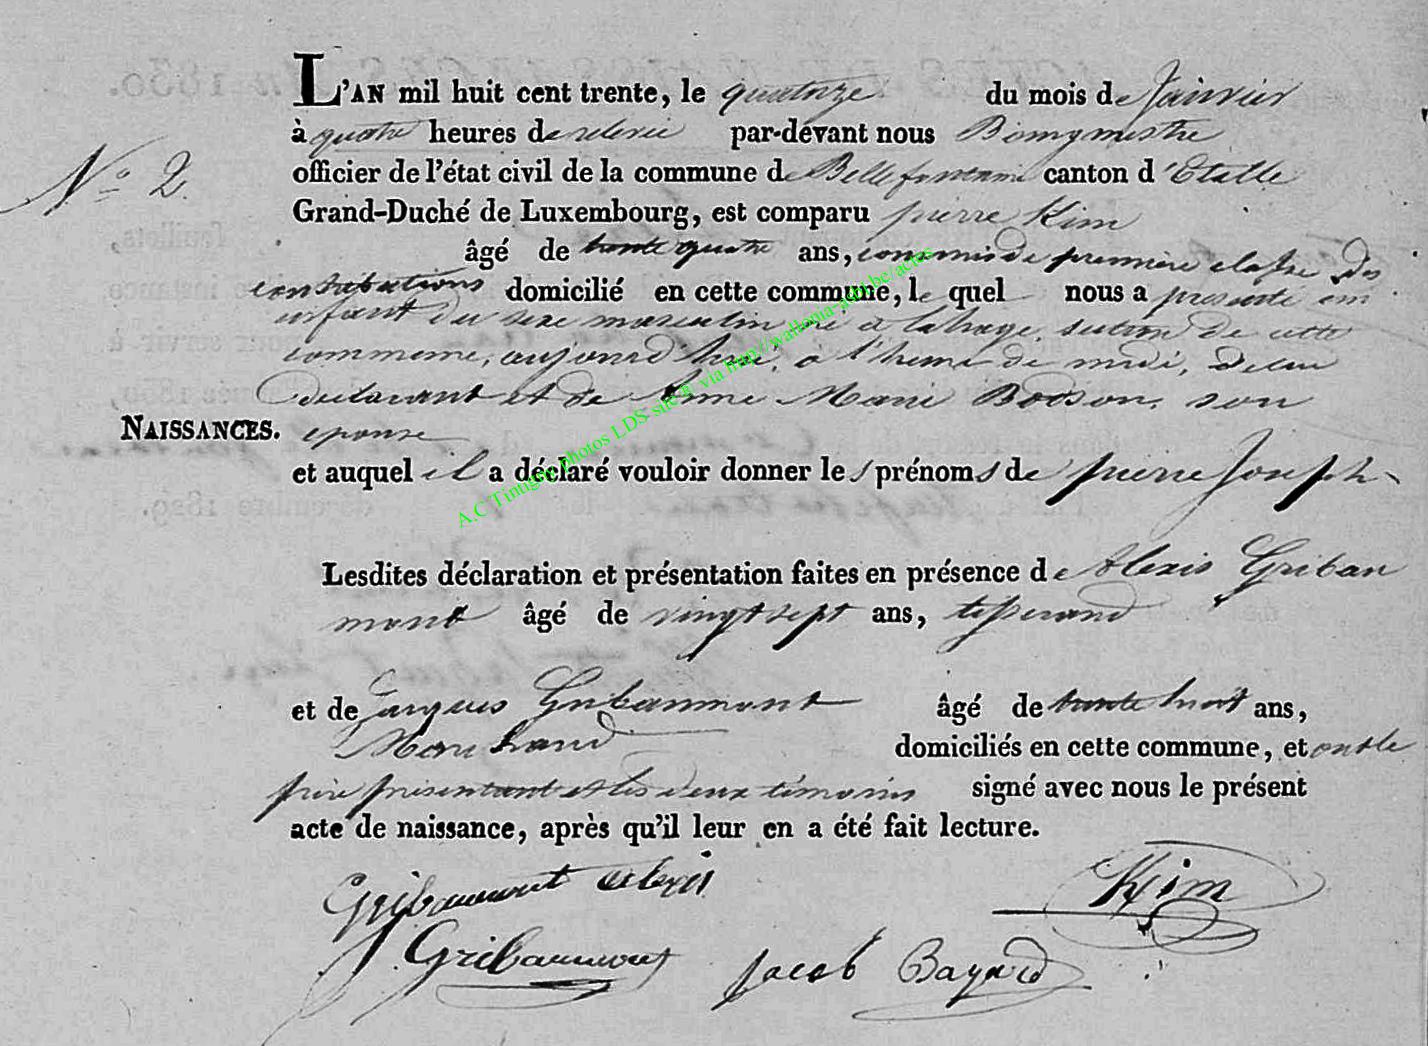 L'AN mil huit cent trente, le quatorze du mois de Janvier
à quatre heures de relevée par-devant nous Bourgmestre
N.° 2.
officier de l'état civil de la commune de Bellefontaine canton d'Etalle
Grand-Duché de Luxembourg, est comparu pierre Kim
âgé de trente quatre ans, commis de première classe des
contributions domicilié en cette commune, le quel nous a presenté un
enfant du sexe masculin né a lahage, section de cette
commune, aujourd'hui, a l'heure de midi, de lui
declarant et de Anne Marie Bodson, son
NAISSANCES. epouse
et auquel il a déclaré vouloir donner les prénoms de pierre Joseph
Lesdites déclaration et présentation faites en présence de Alexis Griban
mont âgé de vingt sept ans, tisserand
et de Jacques Gribaumont âgé de trente huit ans,
Marchand domiciliés en cette commune, et ont le
père présentant et les deux témoins signé avec nous le présent
acte de naissance, après qu'il leur en a été fait lecture.
Gribaumont alexis Kim
J. Gribaumont Jacob Bayard
A.C Tintigny photos LDS site E via http://wallonia-asbl.be/actes